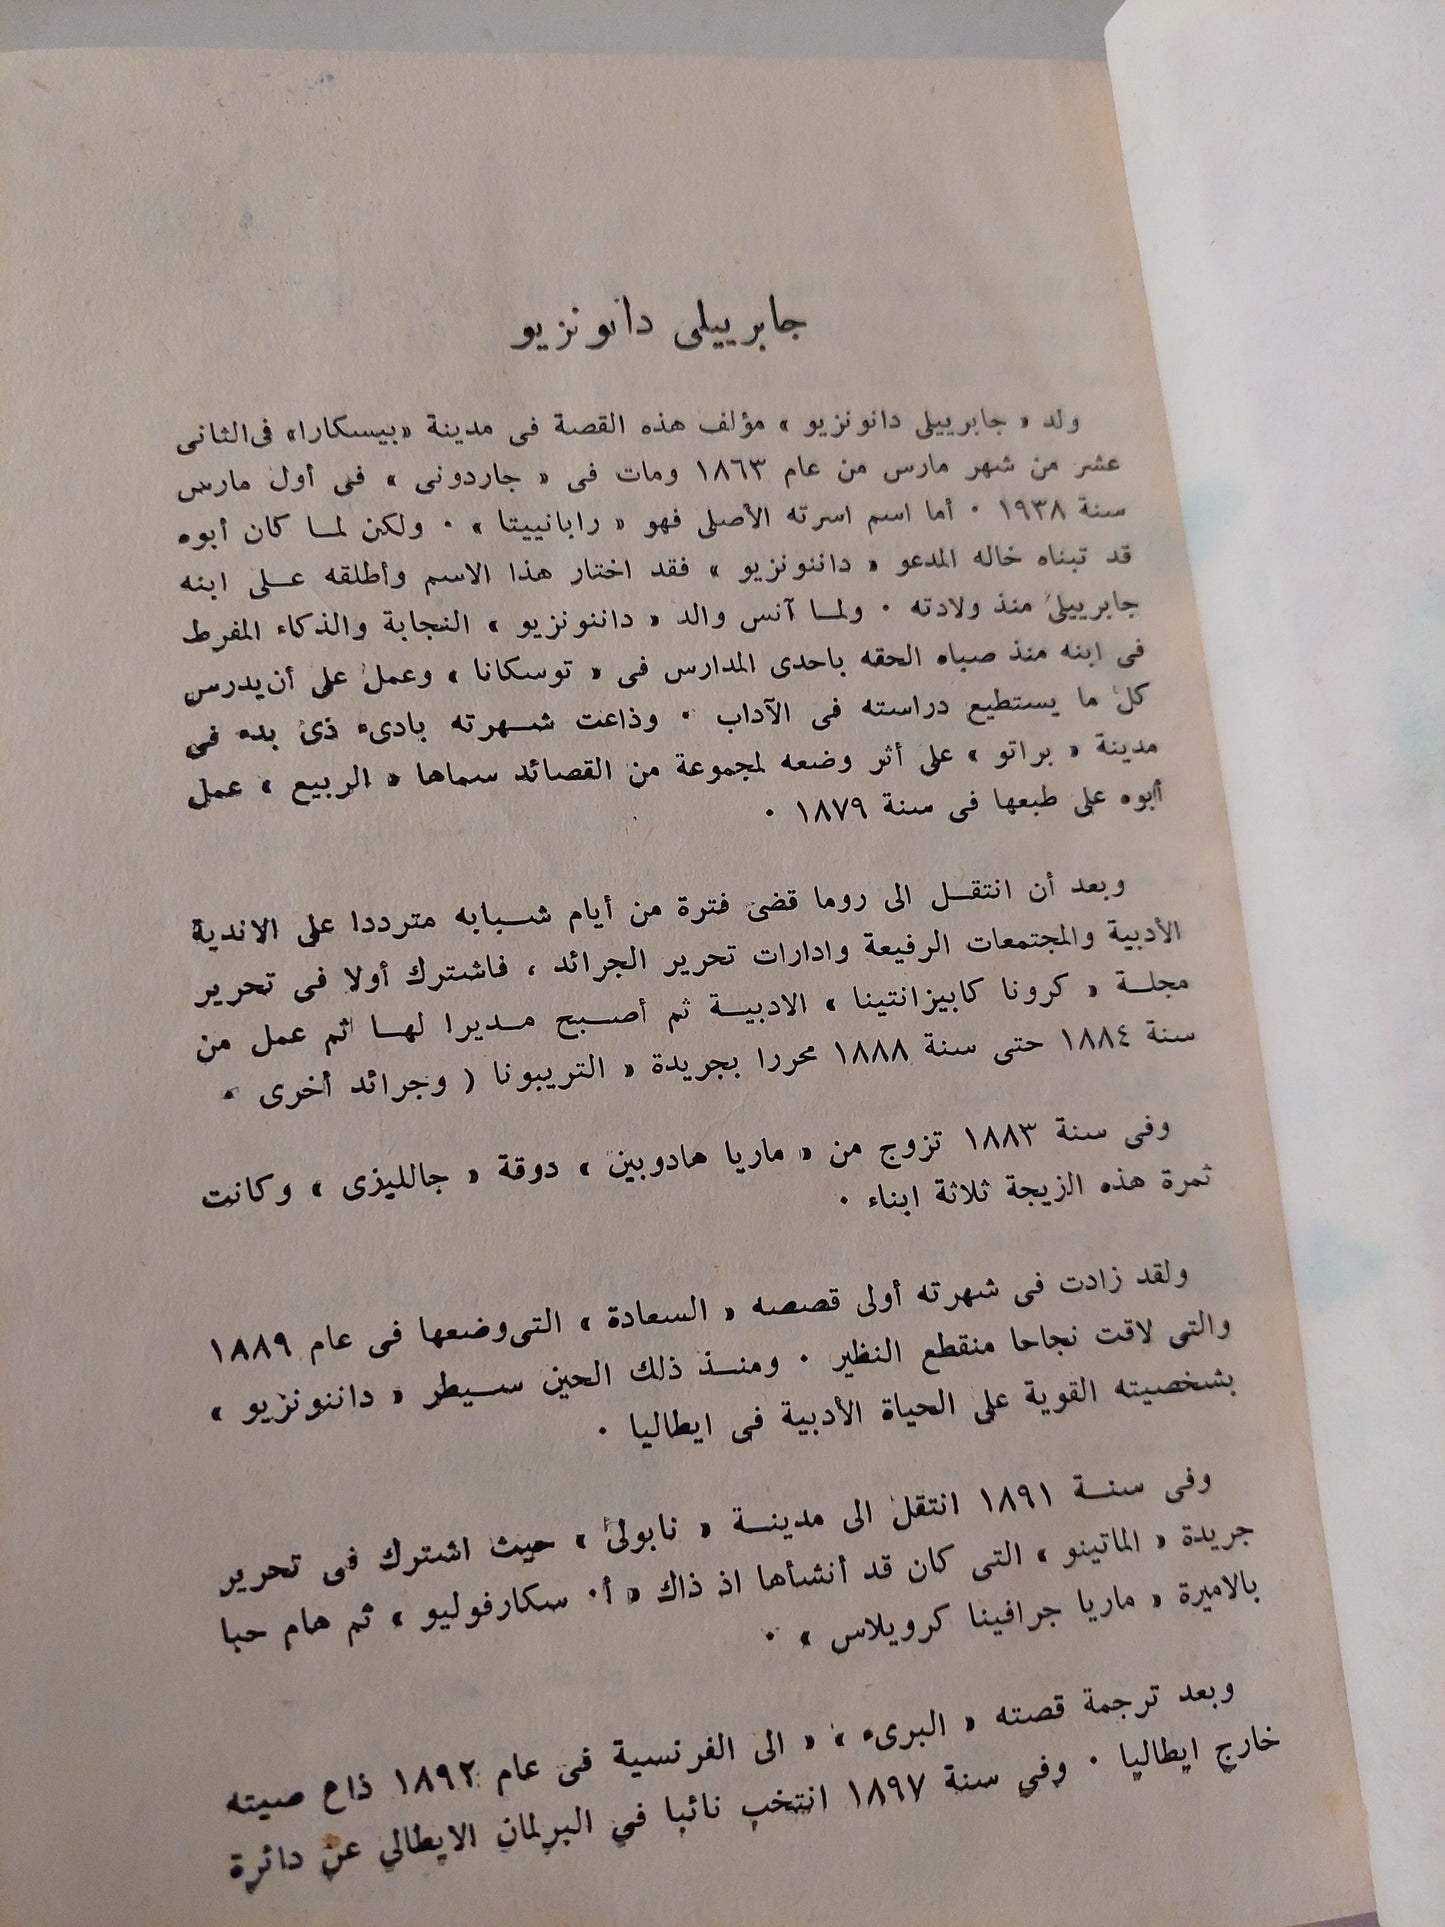 جابرييلى دانونزيو
ولد « جابرييلى دانونزيو » مؤلف هذه القصة فى مدينة «بيسكارا» فى الثانى
عشر من شهر مارس من عام ١٨٦٣ ومات فى « جاردونى » فى أول مارس
سنة ١٩٣٨ ٠ أما اسم اسرته الأصلى فهو « رابانييتا » ٠ ولكن لمــا كان أبوه
قد تبناه خاله المدعو « داننونزيو » فقد اختار هذا الاسم وأطلقه عــلى ابنه
جابرييلى منذ ولادته ٠ ولمــا آنس والد « داننونزيو » النجابة والذكاء المفرط
فى ابنه منذ صباه الحقه باحدى المدارس فى « توسكانا » وعمل على أن يدرس
كل ما يستطيع دراسته فى الآداب ٠ وذاعت شــهرته بادىء ذى بدء فى
مدينة « براتو » على أثر وضعه لمجموعة من القصائد سماها « الربيع » عمل
أبوه على طبعها فى سنة ١٨٧٩ ٠
وبعد أن انتقــل الى روما قضى فترة من أيام شــبابه مترددا على الاندية
الأدبية والمجتمعات الرفيعة وادارات تحرير الجرائد ، فاشترك أولا فى تحرير
مجلــة « كرونا كابيزانتينا » الادبيــة ثم أصــبح مــديرا لهــا ثم عمل من
سنة ١٨٨٤ حتى سنة ١٨٨٨ محررا بجريدة « التريبونا ( وجرائد أخرى ٠
وفى سنة ١٨٨٣ تزوج من « ماريا هادوبين » دوقة « جالليزى » وكانت
ثمرة هذه الزيجة ثلاثة ابناء ٠
ولقد زادت فى شهرته أولى قصصه « السعادة » التى وضعها فى عام ١٨٨٩
والتى لاقت نجاحا منقطع النظير ٠ ومنــذ ذلك الحين ســيطر « داننونزيو »
بشخصيته القوية على الحياة الأدبية فى ايطاليا ٠
وفى سنــة ١٨٩١ انتقل الى مدينــة « نابولى » حيث اشترك فى تحرير
جريدة « الماتينو » التى كان قد أنشأها اذ ذاك « أ٠ سكارفوليو » ثم هام حبا
بالاميرة « ماريا جرافينا كرويلاس » ٠
وبعد ترجمة قصته « البرىء » « الى الفرنسية فى عام ١٨٩٢ ذاع صيته
خارج ايطاليا ٠ وفى سنة ١٨٩٧ انتخب نائبا في البرلمان الايطالي عن دائرة